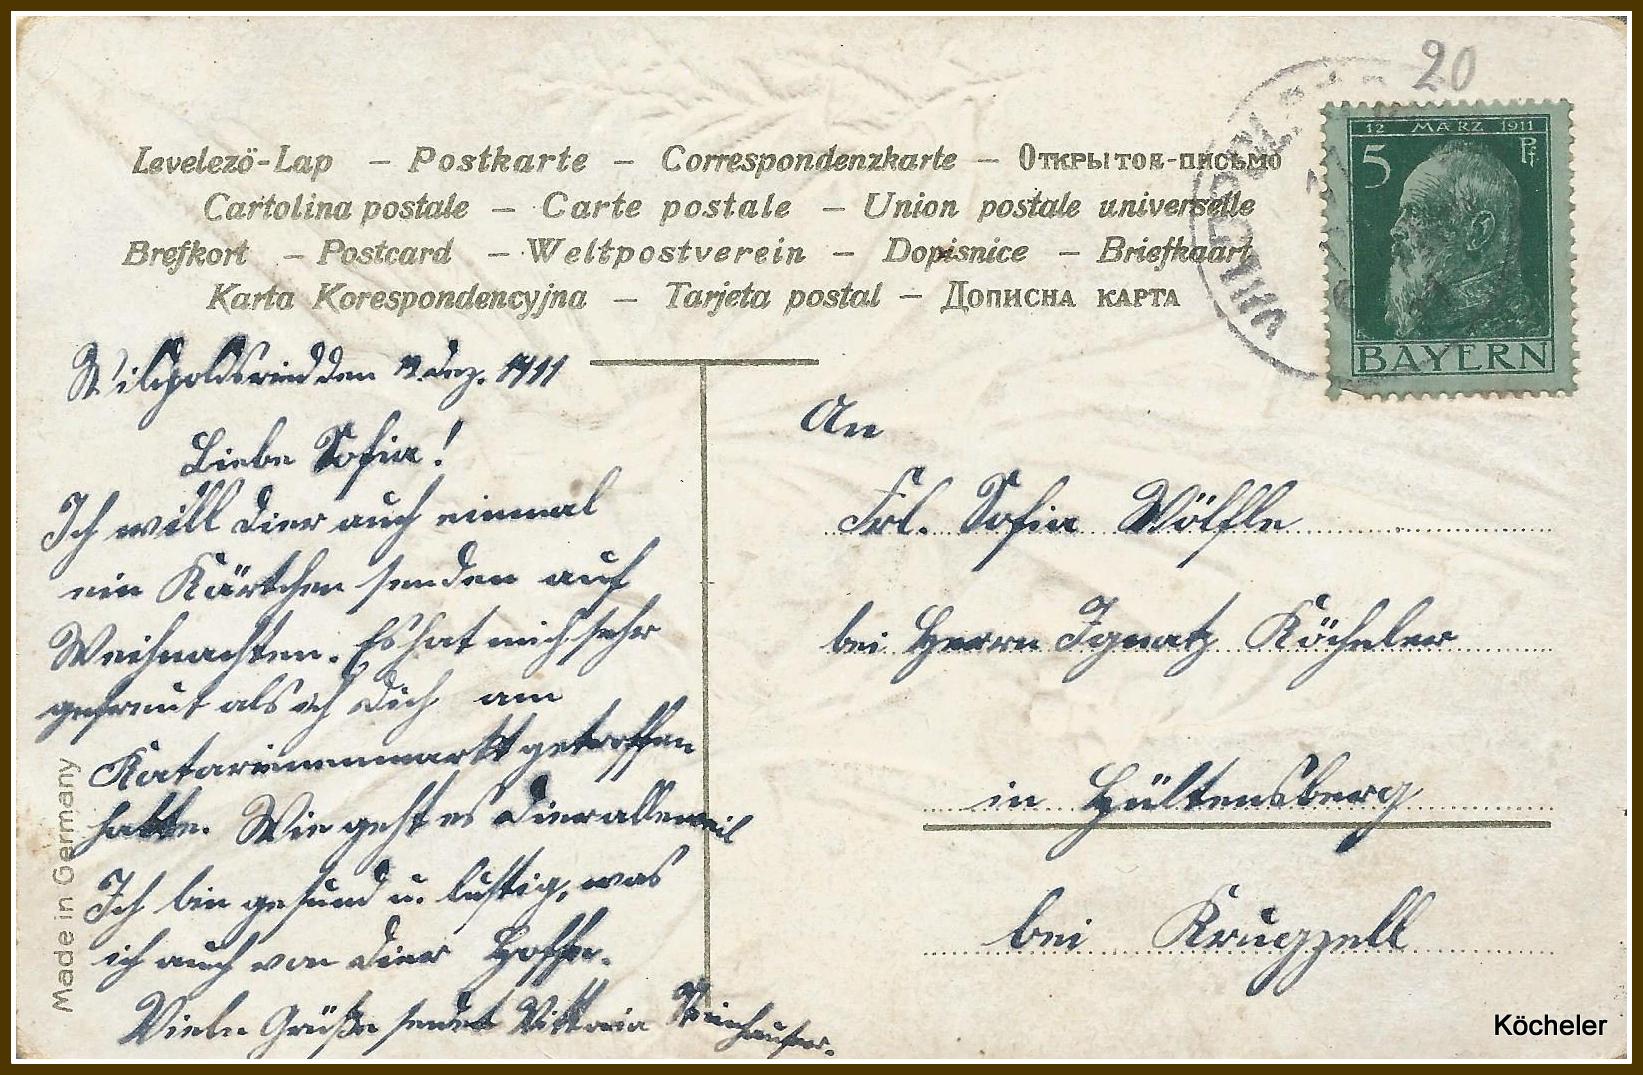 20
12 MÄRZ 1911
5 Pf
BAYERN
Levelezö-Lap – Postkarte – Correspondenzkarte – Открытое-письмо
Cartolina postale – Carte postale – Union postale universelle
Brefkort – Postcard – Weltpostverein – Dopisnice – Briefkaart
Karta Korespondencyjna – Tarjeta postal – Дописна карта
Wilpoldsried den Dez. 1911
Liebe Sofia!
Ich will Dier auch einmal
ein Kärtchen senden auf
Weihnachten. Es hat mich sehr
gefreut als ich Dich am
Katarinenmarkt getroffen
hatte. Wie geht es Dier alleweil
Ich bin gesund u. lustig, was
ich auch von Dier hoffe.
Viele Grüße sendet Viktoria Steinhauser.
An
Frl. Sofia Wölfle
bei Herrn Ignatz Köcheler
in Hültensberg
bei Krugzell
Made in Germany
Köcheler